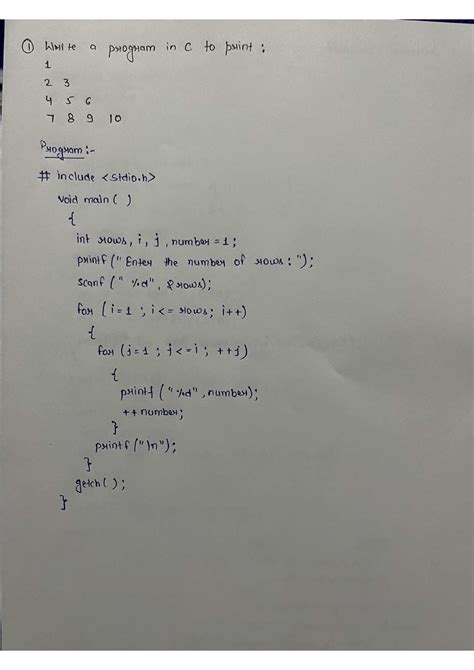 ① Write a program in C to print :
1
2 3
4 5 6
7 8 9 10
Program :-
# include <stdio.h>
void main ( )
{
int rows, i, j, number = 1;
printf (" Enter the number of rows : ");
scanf (" %d", &rows);
for (i = 1 ; i <= rows; i++)
{
for (j = 1 ; j <= i ; ++j)
{
printf ("%d", number);
++ number;
}
printf ("\n");
}
getch ( );
}